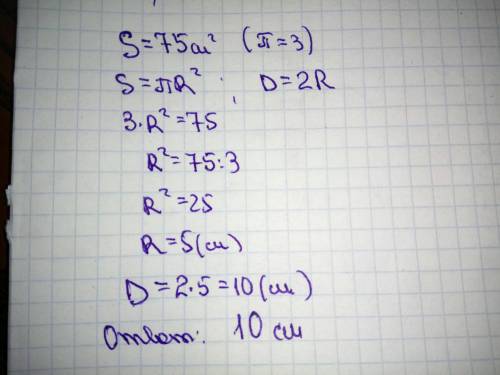 S=75см² (π=3)
S=πR² ; D=2R
3·R²=75
R²=75:3
R²=25
R=5(см)
D=2·5=10(см)
Ответ: 10 см